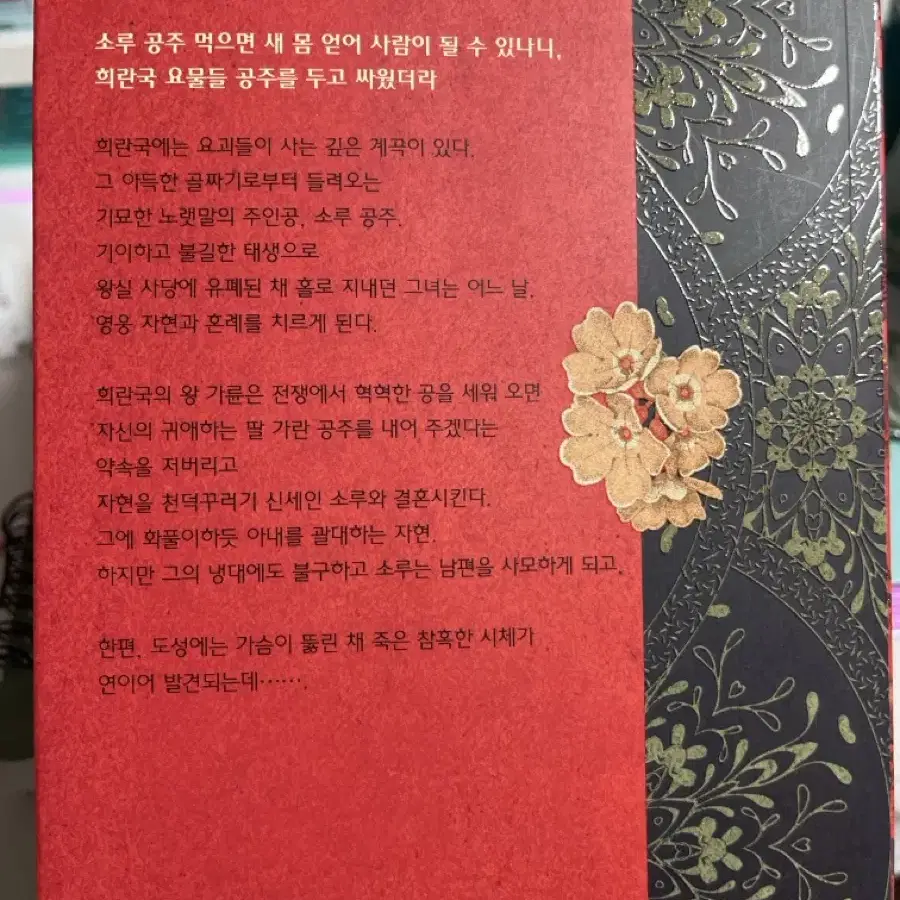 소루 공주 먹으면 새 몸 얻어 사람이 될 수 있나니,
희란국 요물들 공주를 두고 싸웠더라
희란국에는 요괴들이 사는 깊은 계곡이 있다.
그 아득한 골짜기로부터 들려오는
기묘한 노랫말의 주인공, 소루 공주.
기이하고 불길한 태생으로
왕실 사당에 유폐된 채 홀로 지내던 그녀는 어느 날,
영웅 자현과 혼례를 치르게 된다.
희란국의 왕 가륜은 전쟁에서 혁혁한 공을 세워 오면
자신의 귀애하는 딸 가란 공주를 내어 주겠다는
약속을 저버리고
자현을 천덕꾸러기 신세인 소루와 결혼시킨다.
그에 화풀이하듯 아내를 괄대하는 자현.
하지만 그의 냉대에도 불구하고 소루는 남편을 사모하게 되고,
한편, 도성에는 가슴이 뚫린 채 죽은 참혹한 시체가
연이어 발견되는데…….